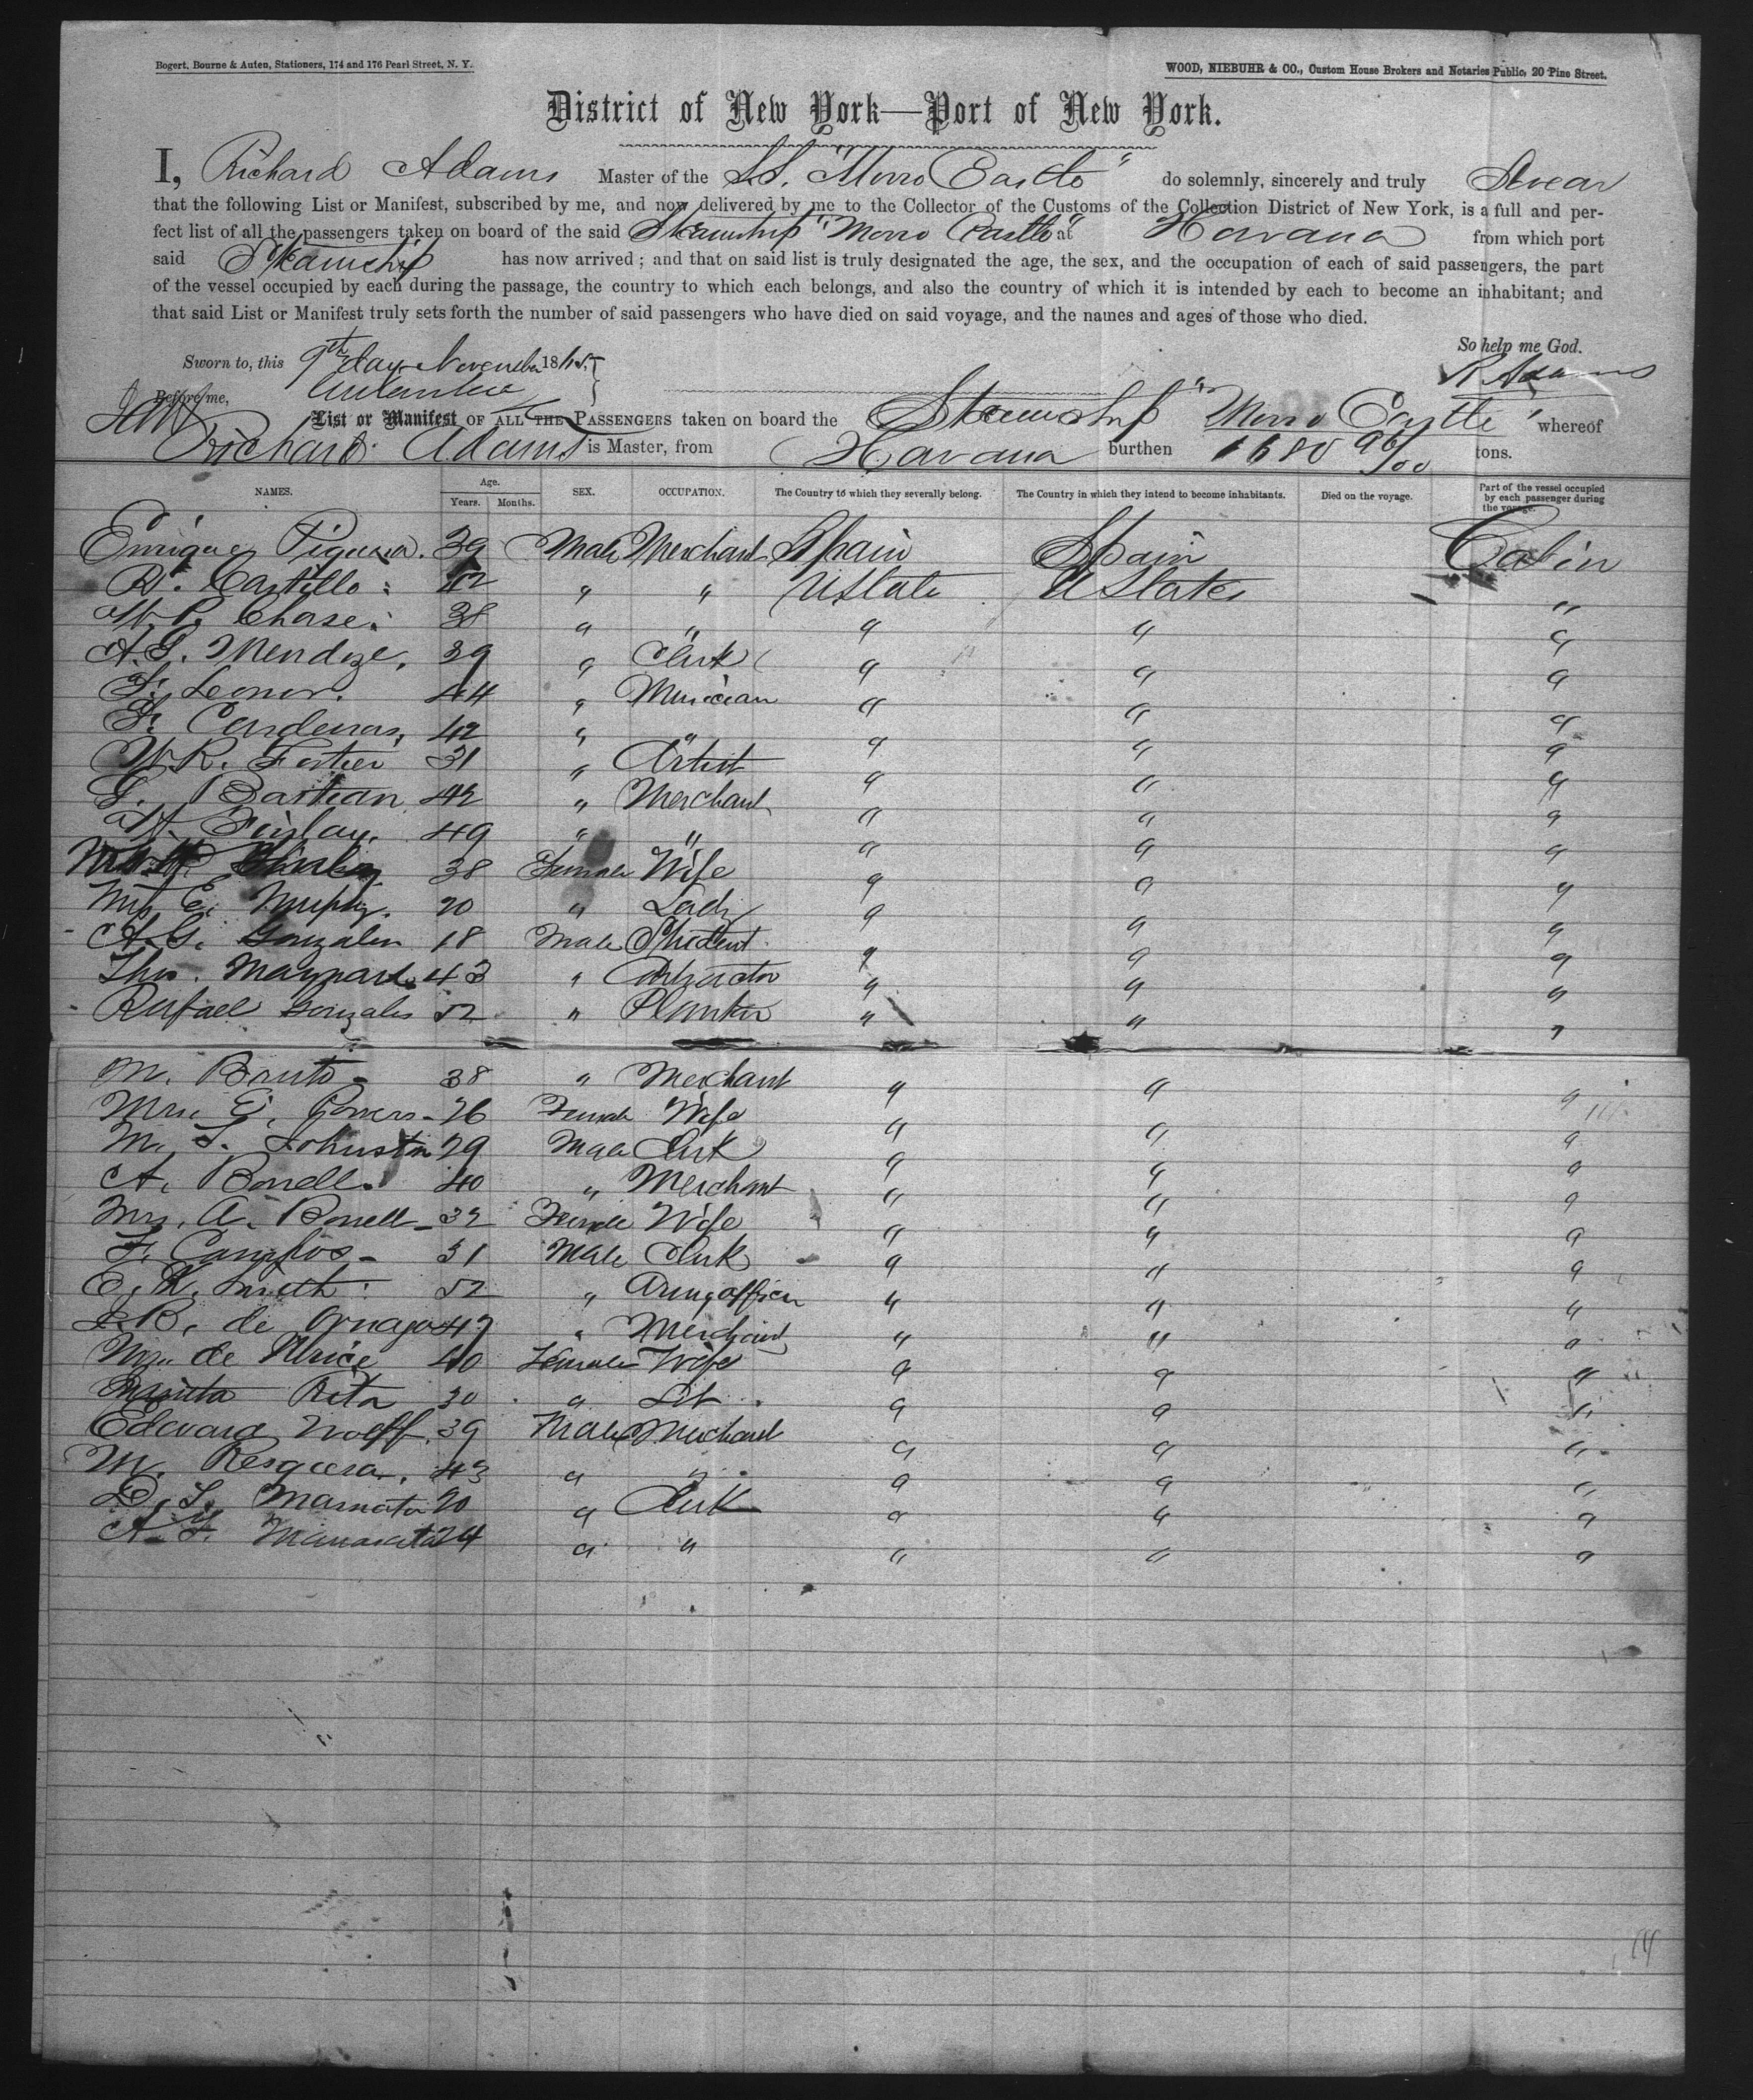 Bogert, Bourne & Auten, Stationers, 174 and 176 Pearl Street, N. Y.
WOOD, NIEBUHR & CO., Custom House Brokers and Notaries Public, 20 Pine Street.
District of New York—Port of New York.
I, Richard Adams Master of the S.S. "Morro Castle" do solemnly, sincerely and truly Swear
that the following List or Manifest, subscribed by me, and now delivered by me to the Collector of the Customs of the Collection District of New York, is a full and per-
fect list of all the passengers taken on board of the said Steamship "Morro Castle" at Havana from which port
said Steamship has now arrived; and that on said list is truly designated the age, the sex, and the occupation of each of said passengers, the part
of the vessel occupied by each during the passage, the country to which each belongs, and also the country of which it is intended by each to become an inhabitant; and
that said List or Manifest truly sets forth the number of said passengers who have died on said voyage, and the names and ages of those who died.
So help me God.
Sworn to, this 9th day November 1865 R Adams
Before me,
List or Manifest OF ALL THE PASSENGERS taken on board the Steamship "Morro Castle" whereof
Richard Adams is Master, from Havana burthen 1680 96/100 tons.
NAMES. Age. Years. Months. SEX. OCCUPATION. The Country to which they severally belong. The Country in which they intend to become inhabitants. Died on the voyage. Part of the vessel occupied by each passenger during the voyage.
Enrique 39 Male Merchant Spain Spain Cabin
R. Castillo 42 " " U State U States "
W. P. Chase 38 " " " " "
A. G. 39 " Clerk " " "
F. Leonor. 44 " Musician " " "
F. Cardenas, 42 " " " " "
W. R. Fortier 31 " Artist " " "
Bastian 42 " Merchant " " "
W. Finlay. 49 " " " " "
38 Female Wife " " "
E. Murphy. 20 " Lady " " "
A. G. Gonzales 18 Male Student " " "
Thos. Maynard 43 " Contractor " " "
Rafael Gonzales 52 " Planter " " "
M. 38 " Merchant " " "
Mrs. E. 26 Female Wife " " "
M. S. Johnston 29 Male Clerk " " "
A. Borrell 40 " Merchant " " "
Mrs. A. Borrell 32 Female Wife " " "
F. Campos 31 Male Clerk " " "
E. K. Smith 52 " Army officer " " "
B. de 47 " Merchant " " "
de 40 Female Wife " " "
Rita 30 " " " "
Edward Wolff. 39 Male Merchant " " "
M. 43 " " " " "
20 " Clerk " " "
24 " " " " "